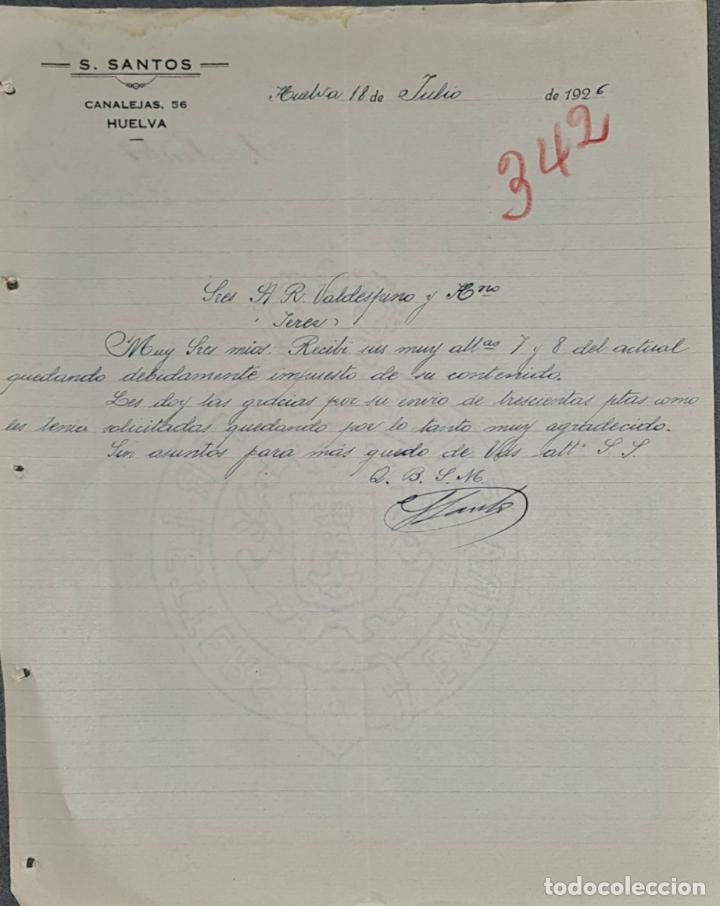 S. SANTOS
CANALEJAS, 56
HUELVA
Huelva 18 de Julio de 1926
342
Sres A. R. Valdespino y Hno
Jerez
Muy Sres mios. Recibi sus muy attas 7 y 8 del actual
quedando debidamente impuesto de su contenido.
Les doy las gracias por su envio de trescientas ptas como
les tenia solicitadas quedando por lo tanto muy agradecido.
Sin asuntos para más quedo de Vds atto S. S.
Q. B. S. M.
S Santos
todocoleccion